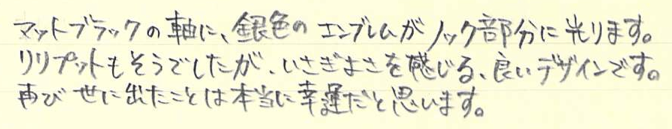 マットブラックの軸に、銀色のエンブレムがノック部分に光ります。
リリプットもそうでしたが、いさぎよさを感じる、良いデザインです。
再び世に出たことは本当に幸運だと思います。